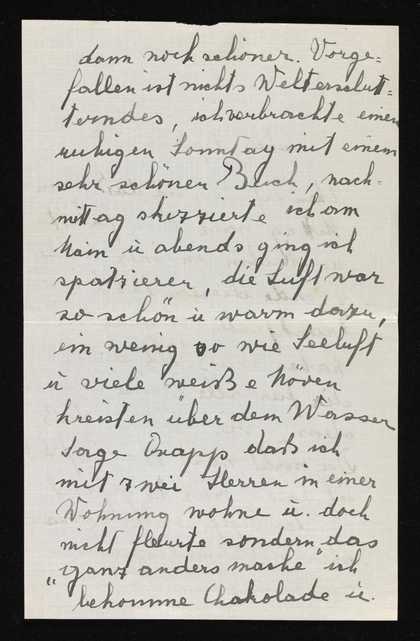 dann noch schöner. Vorge-
fallen ist nichts Welterschüt-
terndes, ich verbrachte einen
ruhigen Sonntag mit einem
sehr schönen Buch, nach-
mittag skizzierte ich am
Main u abends ging ich
spatzieren, die Luft war
so schön u warm dazu,
ein wenig so wie Seeluft
u viele weiße Möven
kreisten über dem Wasser
Sage daß ich
mit zwei Herren in einer
Wohnung wohne u. doch
nicht fleurte sondern das
„ganz anders mache" ich
bekomme Chakolade u.